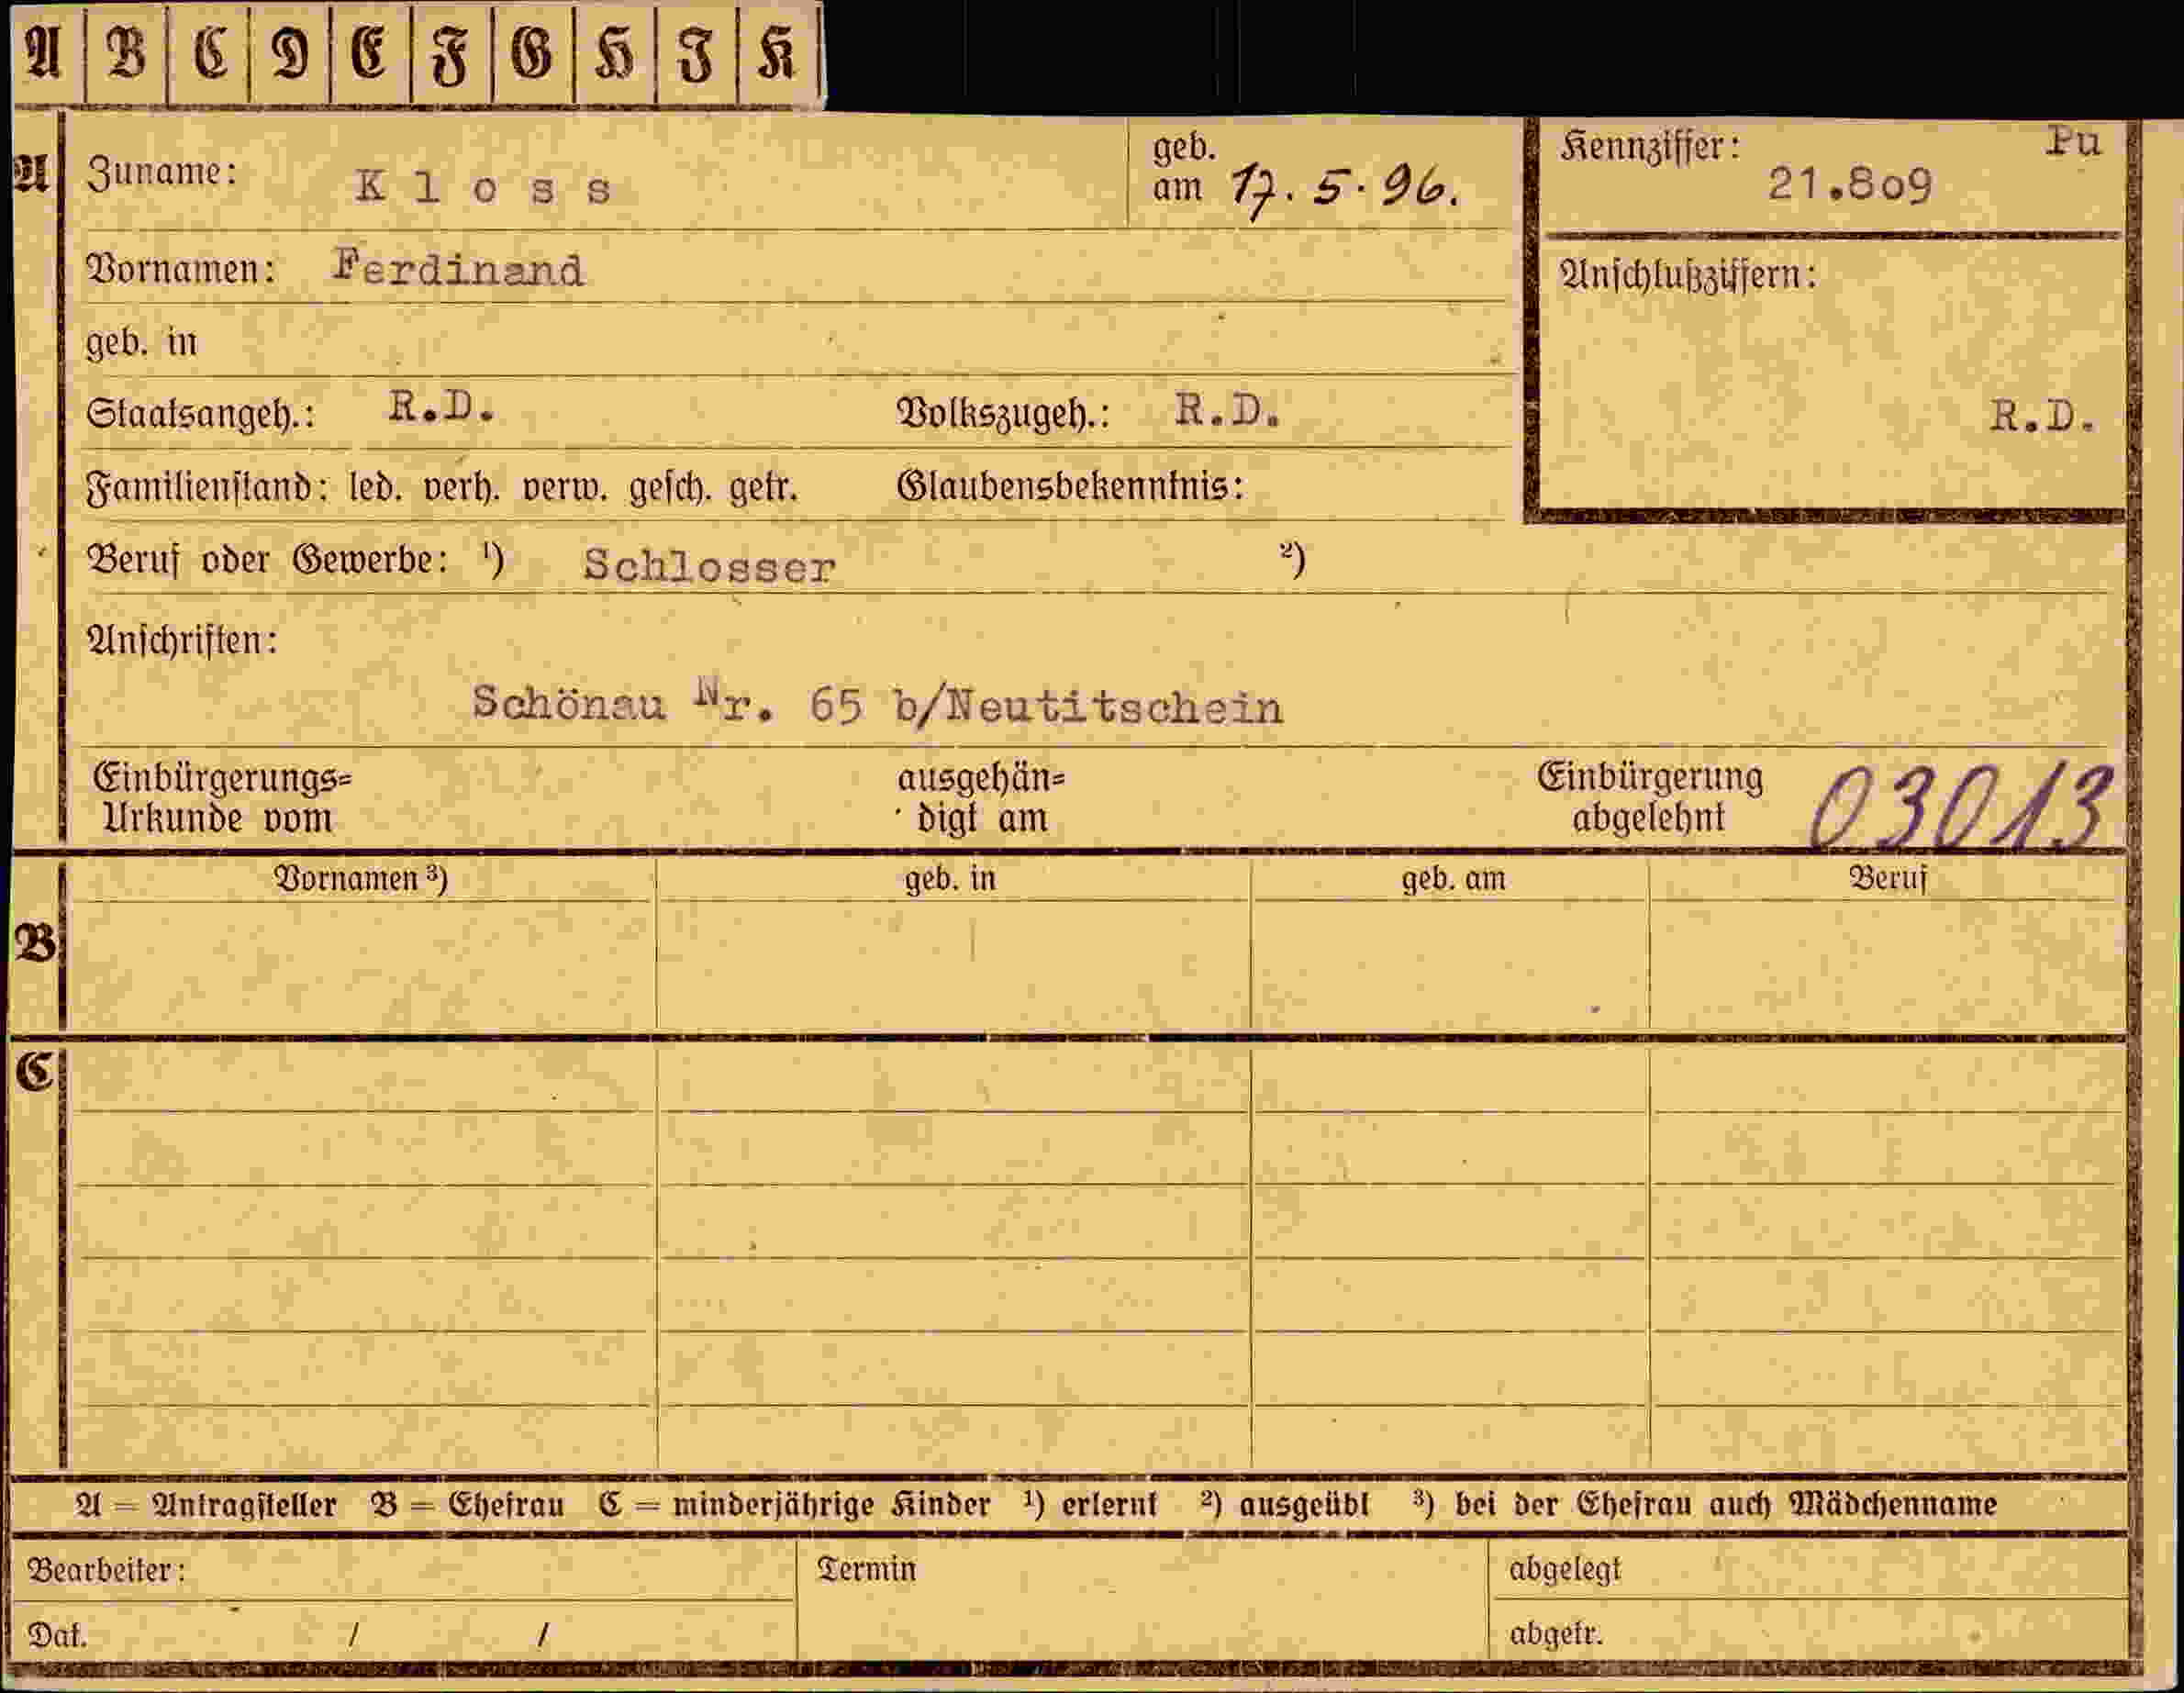 A B C D E F G H I K
A Zuname: Kloss geb. am 17.5.96. Kennziffer: 21.8o9 Pu
Vornamen: Ferdinand Anschlußziffern:
geb. in
Staatsangeh.: R.D. Volkszugeh.: R.D. R.D.
Familienstand: led. verh. verw. gesch. getr. Glaubensbekenntnis:
Beruf oder Gewerbe: ¹) Schlosser ²)
Anschriften:
Schönau Nr. 65 b/Neutitschein
Einbürgerungs= ausgehän= Einbürgerung 03013
Urkunde vom digt am abgelehnt
Vornamen ³) geb. in geb. am Beruf
B
C
A = Antragsteller B = Ehefrau C = minderjährige Kinder ¹) erlernt ²) ausgeübt ³) bei der Ehefrau auch Mädchenname
Bearbeiter: Termin abgelegt
Dat. / / abgetr.